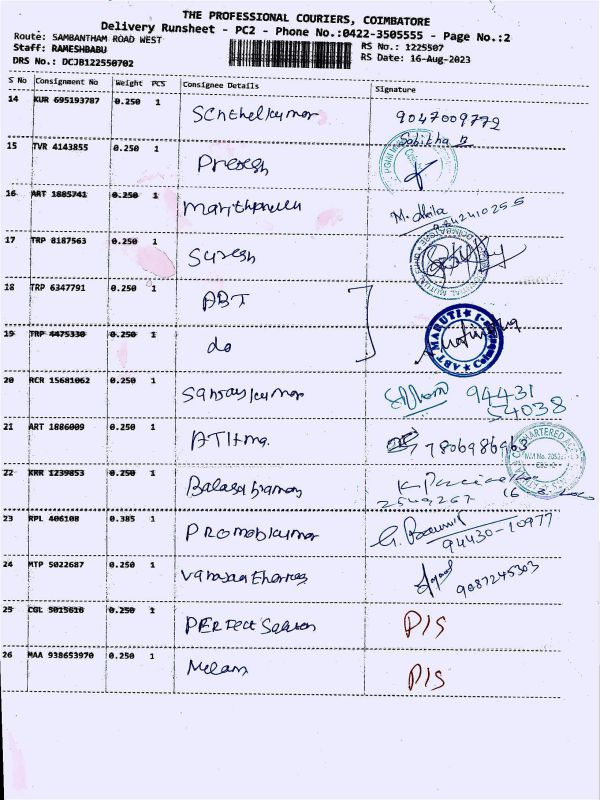 THE PROFESSIONAL COURIERS, COIMBATORE
Delivery Runsheet - PC2 - Phone No.:0422-3505555 - Page No.:2
Route: SAMBANTHAM ROAD WEST
RS No.: 1225507
Staff: RAMESHBABU
RS Date: 16-Aug-2023
DRS No.: DCJB122550702
S No Consignment No Weight PCS Consignee Details Signature
14 KUR 695193787 0.250 1 Senthelkumar 9047009772
Sabitha B
15 TVR 4143855 0.250 1
16 ART 1885741 0.250 1
17 TRP 8187563 0.250 1 Suresh
18 TRP 6347791 0.250 1 ABT
19 TRP 4475330 0.250 1 do
ABT MARUTI
20 RCR 15681062 0.250 1 Sanjaykumar 94431
54038
21 ART 1886009 0.250 1 7806986963
CHARTERED
22 KRR 1239853 0.250 1
23 RPL 406108 0.385 1 Promobkumar
94430-10977
24 MTP 5022687 0.250 1
9087245303
25 CGL 5015610 0.250 1 PERFect P/S
26 MAA 938653970 0.250 1 Melam P/S